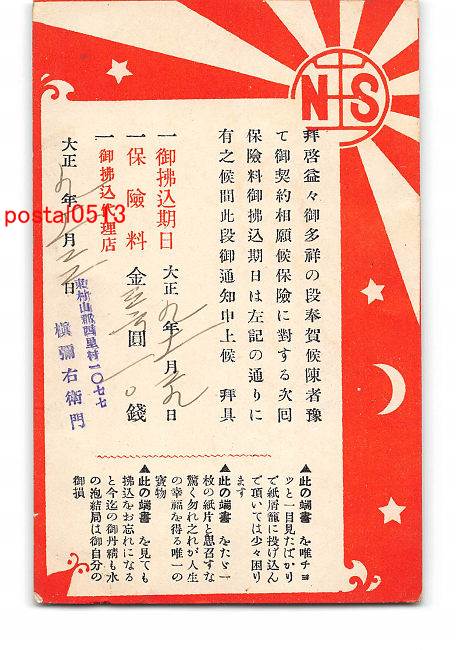 NS
拝啓益々御多祥の段奉賀候陳者豫
て御契約相願候保險に對する次回
保險料御拂込期日は左記の通りに
有之候間此段御通知申上候 拜具
一御拂込期日 大正九年 月 日
一保險料 金 圓 〇錢
一御拂込代理店
大正九年 月 日
東村山郡 村一〇七七
槇彌右衛門
▲此の端書 を唯チョ
ッと一目見たばかり
で紙屑籠に投げ込ん
で頂いては少々困り
ます
▲此の端書 をたゞ一
枚の紙片と思召すな
驚く勿れこれが人生
の幸福を得る唯一の
寳物
▲此の端書 を見ても
拂込をお忘れになる
と今迄の御丹精も水
の泡結局は御自分の
御損
postal0513